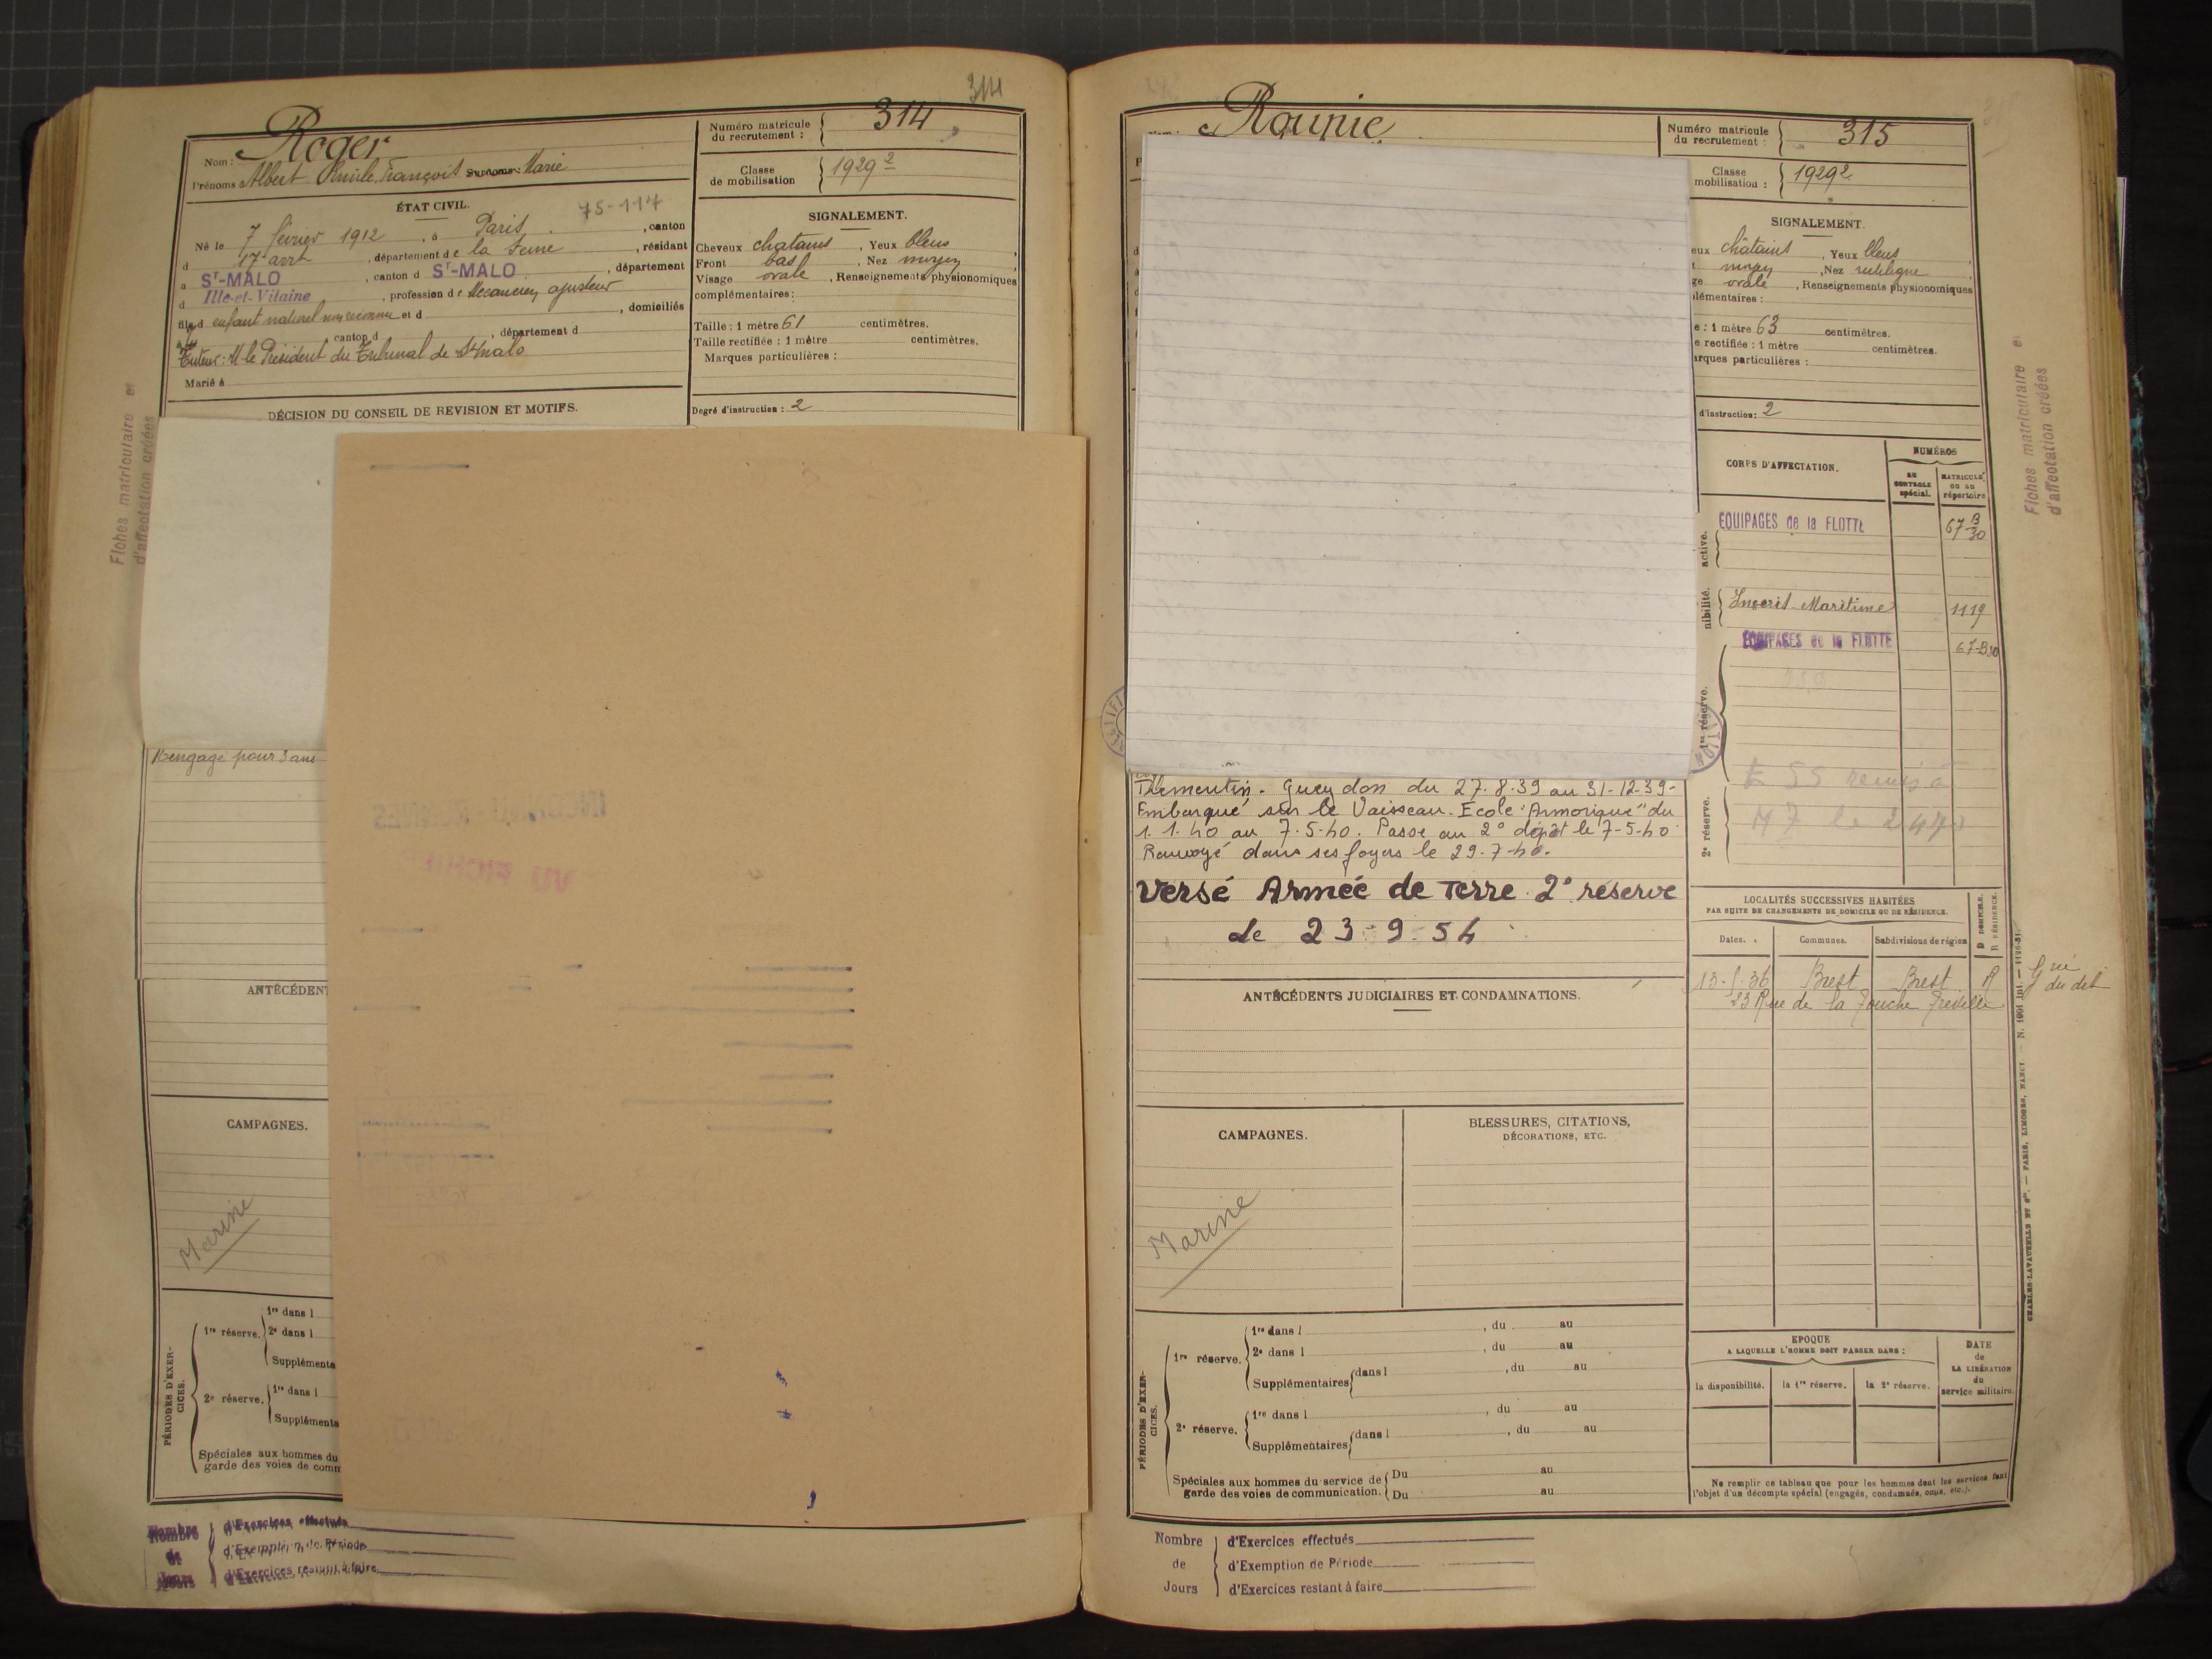 314
Roger
Nom :
Prénoms : Albert Emile François Surnoms : Marie
Numéro matricule
du recrutement :
314
Classe
de mobilisation
1929 2
ÉTAT CIVIL.
75-1-17
Né le 7 février 1912, à Paris, canton
d 17e arrt, département de la Seine, résidant
à ST-MALO, canton d ST-MALO, département
d Ille-et-Vilaine, profession de Mécanicien ajusteur
fils d enfant naturel non reconnu et d , domiciliés
canton d , département d
Tuteur : M le Président du Tribunal de St Malo
Marié à
SIGNALEMENT.
Cheveux chatains, Yeux bleus
Front bas, Nez moyen
Visage ovale, Renseignements physionomiques
complémentaires :
Taille : 1 mètre 61 centimètres.
Taille rectifiée : 1 mètre centimètres.
Marques particulières :
Degré d'instruction : 2
DÉCISION DU CONSEIL DE REVISION ET MOTIFS.
Fiches matriculaire et
d'affectation créées
Rengagé pour 3 ans
ANTÉCÉDENT
CAMPAGNES.
Marine
PÉRIODES D'EXER-
CICES.
1re réserve.
1re dans l
2e dans l
Supplémenta
2e réserve.
1re dans l
Supplémenta
Spéciales aux hommes du
garde des voies de comm
Nombre
de
Jours
d'Exercices effectués
d'Exemption de Période
d'Exercices restant à faire
Rounie
Numéro matricule
du recrutement :
315
Classe
mobilisation :
1929 2
SIGNALEMENT.
eux châtains, Yeux bleus
moyen, Nez rectiligne
ge ovale, Renseignements physionomiques
lémentaires :
e : 1 mètre 63 centimètres.
e rectifiée : 1 mètre centimètres.
arques particulières :
d'instruction : 2
CORPS D'AFFECTATION.
NUMÉROS
AU
CONTROLE
spécial.
MATRICULE
ou au
répertoire
active.
EQUIPAGES de la FLOTTE
67 B
30
nibilité.
Inscrit Maritime
1119
EQUIPAGES de la FLOTTE
67-B30
1re réserve.
2e réserve.
Fiches matriculaire et
d'affectation créées
Thementin - Gueydon du 27.8.39 au 31-12-39-
Embarqué sur le Vaisseau-Ecole "Armorique" du
1.1.40 au 7.5.40. Passé au 2e dépôt le 7-5-40
Renvoyé dans ses foyers le 29.7.40.
Versé Armée de Terre 2e réserve
Le 23-9-54
LOCALITÉS SUCCESSIVES HABITÉES
PAR SUITE DE CHANGEMENTS DE DOMICILE OU DE RÉSIDENCE.
Dates.
Communes.
Subdivisions de région
D DOMICILE.
R RÉSIDENCE.
Brest Brest R
23 Rue de la Touche Tréville
ANTÉCÉDENTS JUDICIAIRES ET CONDAMNATIONS.
CAMPAGNES.
BLESSURES, CITATIONS,
DÉCORATIONS, ETC.
Marine
PÉRIODES D'EXER-
CICES.
1re réserve.
1re dans l , du au
2e dans l , du au
Supplémentaires dans l , du au
2e réserve.
1re dans l , du au
Supplémentaires dans l , du au
Spéciales aux hommes du service de
garde des voies de communication.
Du au
Du au
EPOQUE
A LAQUELLE L'HOMME DOIT PASSER DANS :
la disponibilité.
la 1re réserve.
la 2e réserve.
DATE
de
LA LIBÉRATION
du
service militaire.
Ne remplir ce tableau que pour les hommes dont les services font
l'objet d'un décompte spécial (engagés, condamnés, omis, etc.).
CHARLES-LAVAUZELLE ET Cie. — PARIS, LIMOGES, NANCY
Nombre
de
Jours
d'Exercices effectués
d'Exemption de Période
d'Exercices restant à faire